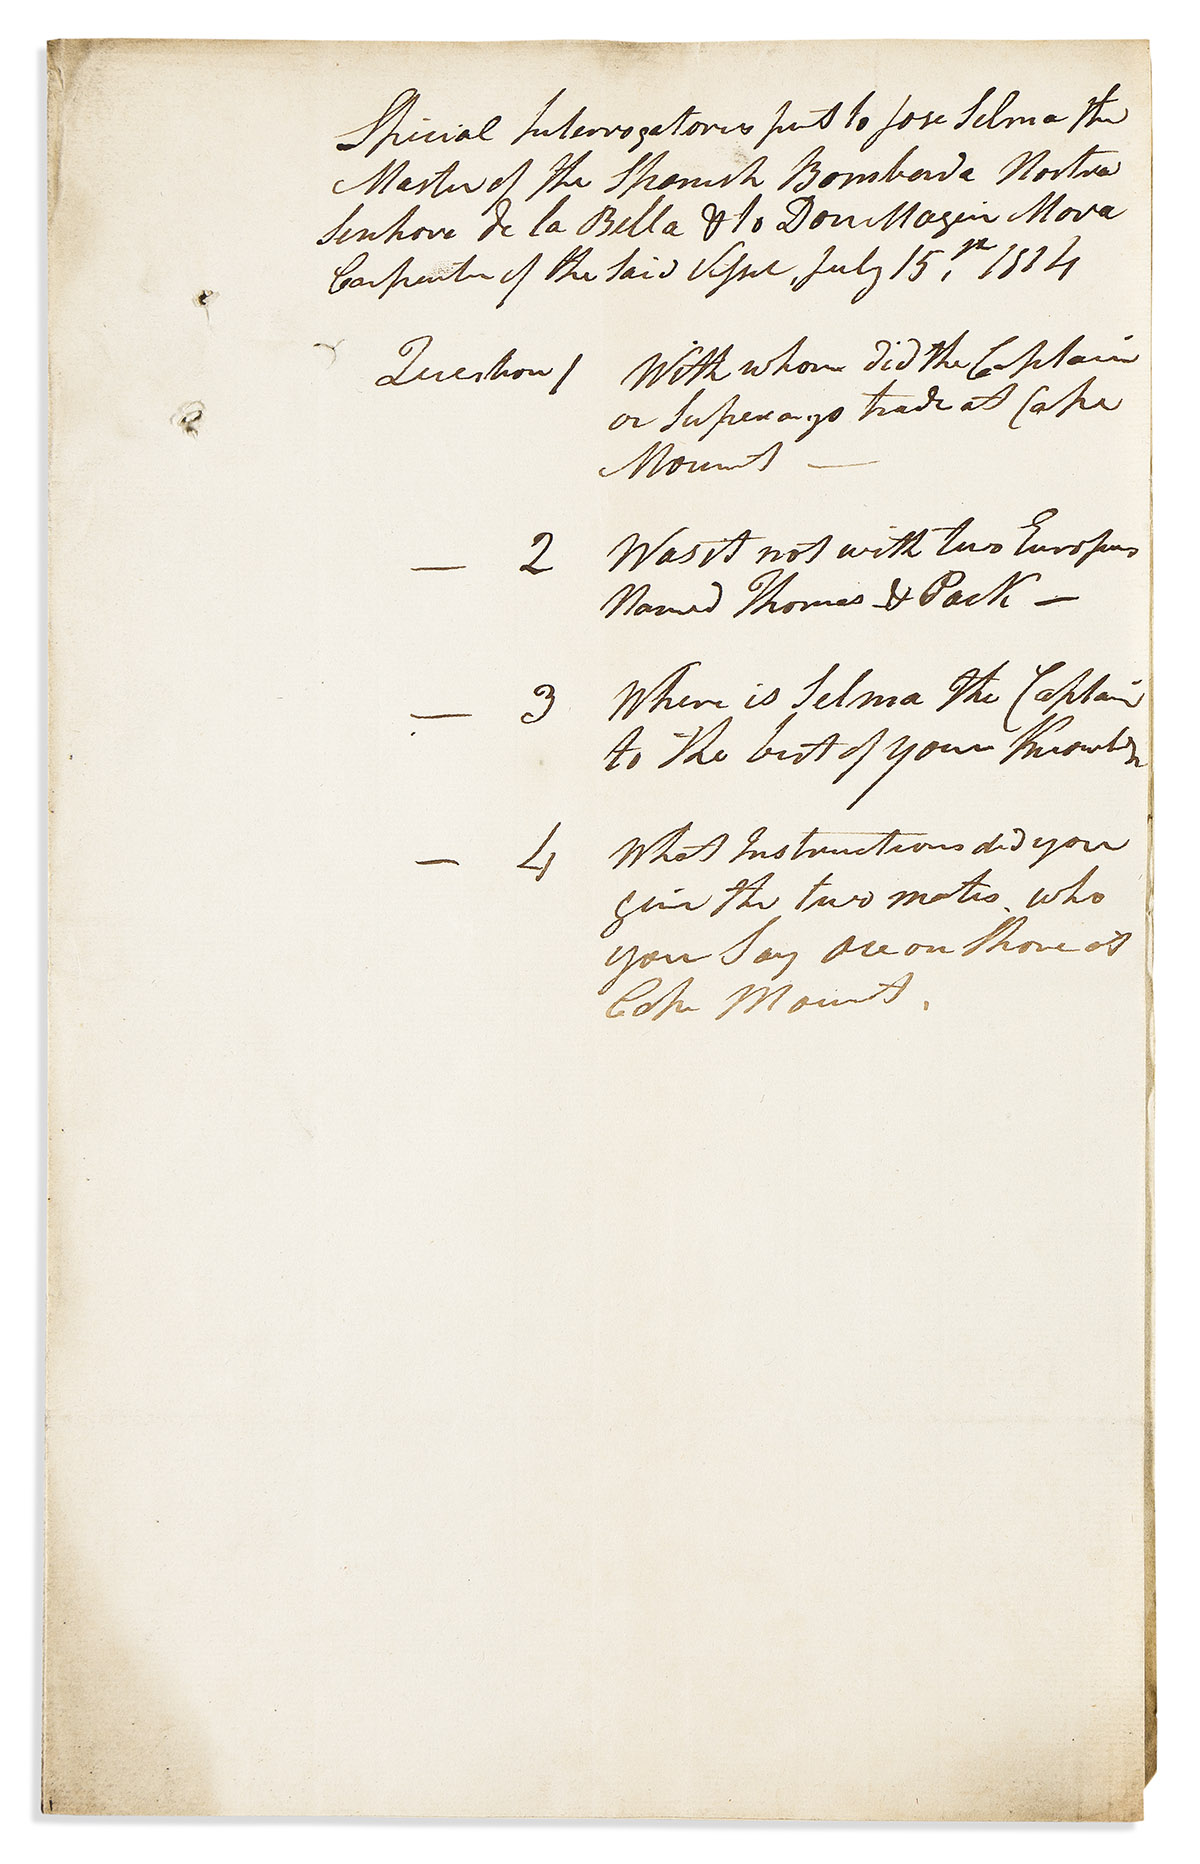 Special Interrogatories put to Jose Selma the
Master of the Spanish Bombarda Nostra
Senhora de la Bella & to Don Magin Mora
Carpenter of the Said Vessel, July 15, 1814
Question 1 With whom did the Captain
or Supercargo trade at Cape
Mount —
— 2 Was it not with two Europeans
Named Thomas & Pack —
— 3 Where is Selma the Captain
to the best of your Knowledge
— 4 What Instructions did you
give the two mates, who
you Say are on Shore at
Cape Mount.